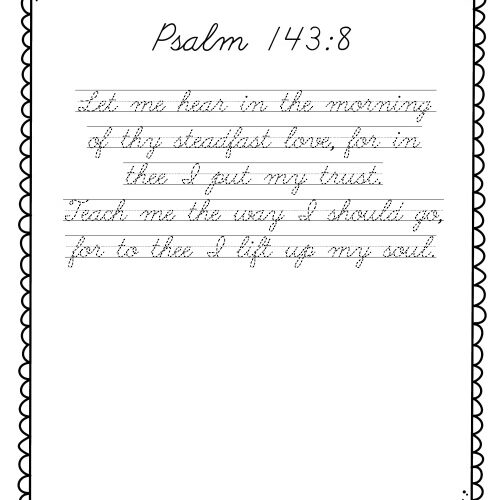 Psalm 143:8
Let me hear in the morning
of thy steadfast love, for in
thee I put my trust.
Teach me the way I should go,
for to thee I lift up my soul.